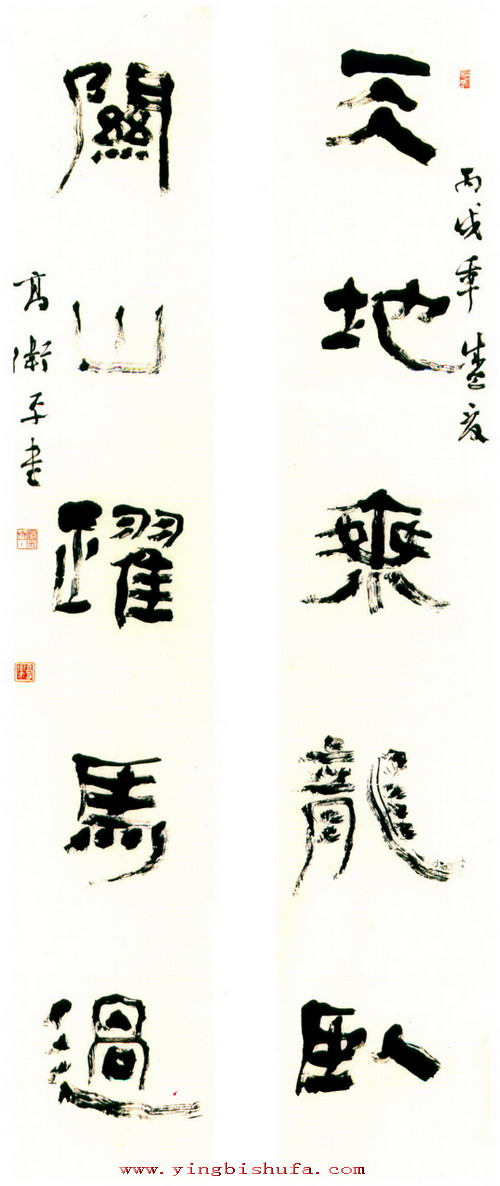 丙戌年盛夏
天地乘龍臥
關山躍馬過
高衛平書
www.yingbishufa.com